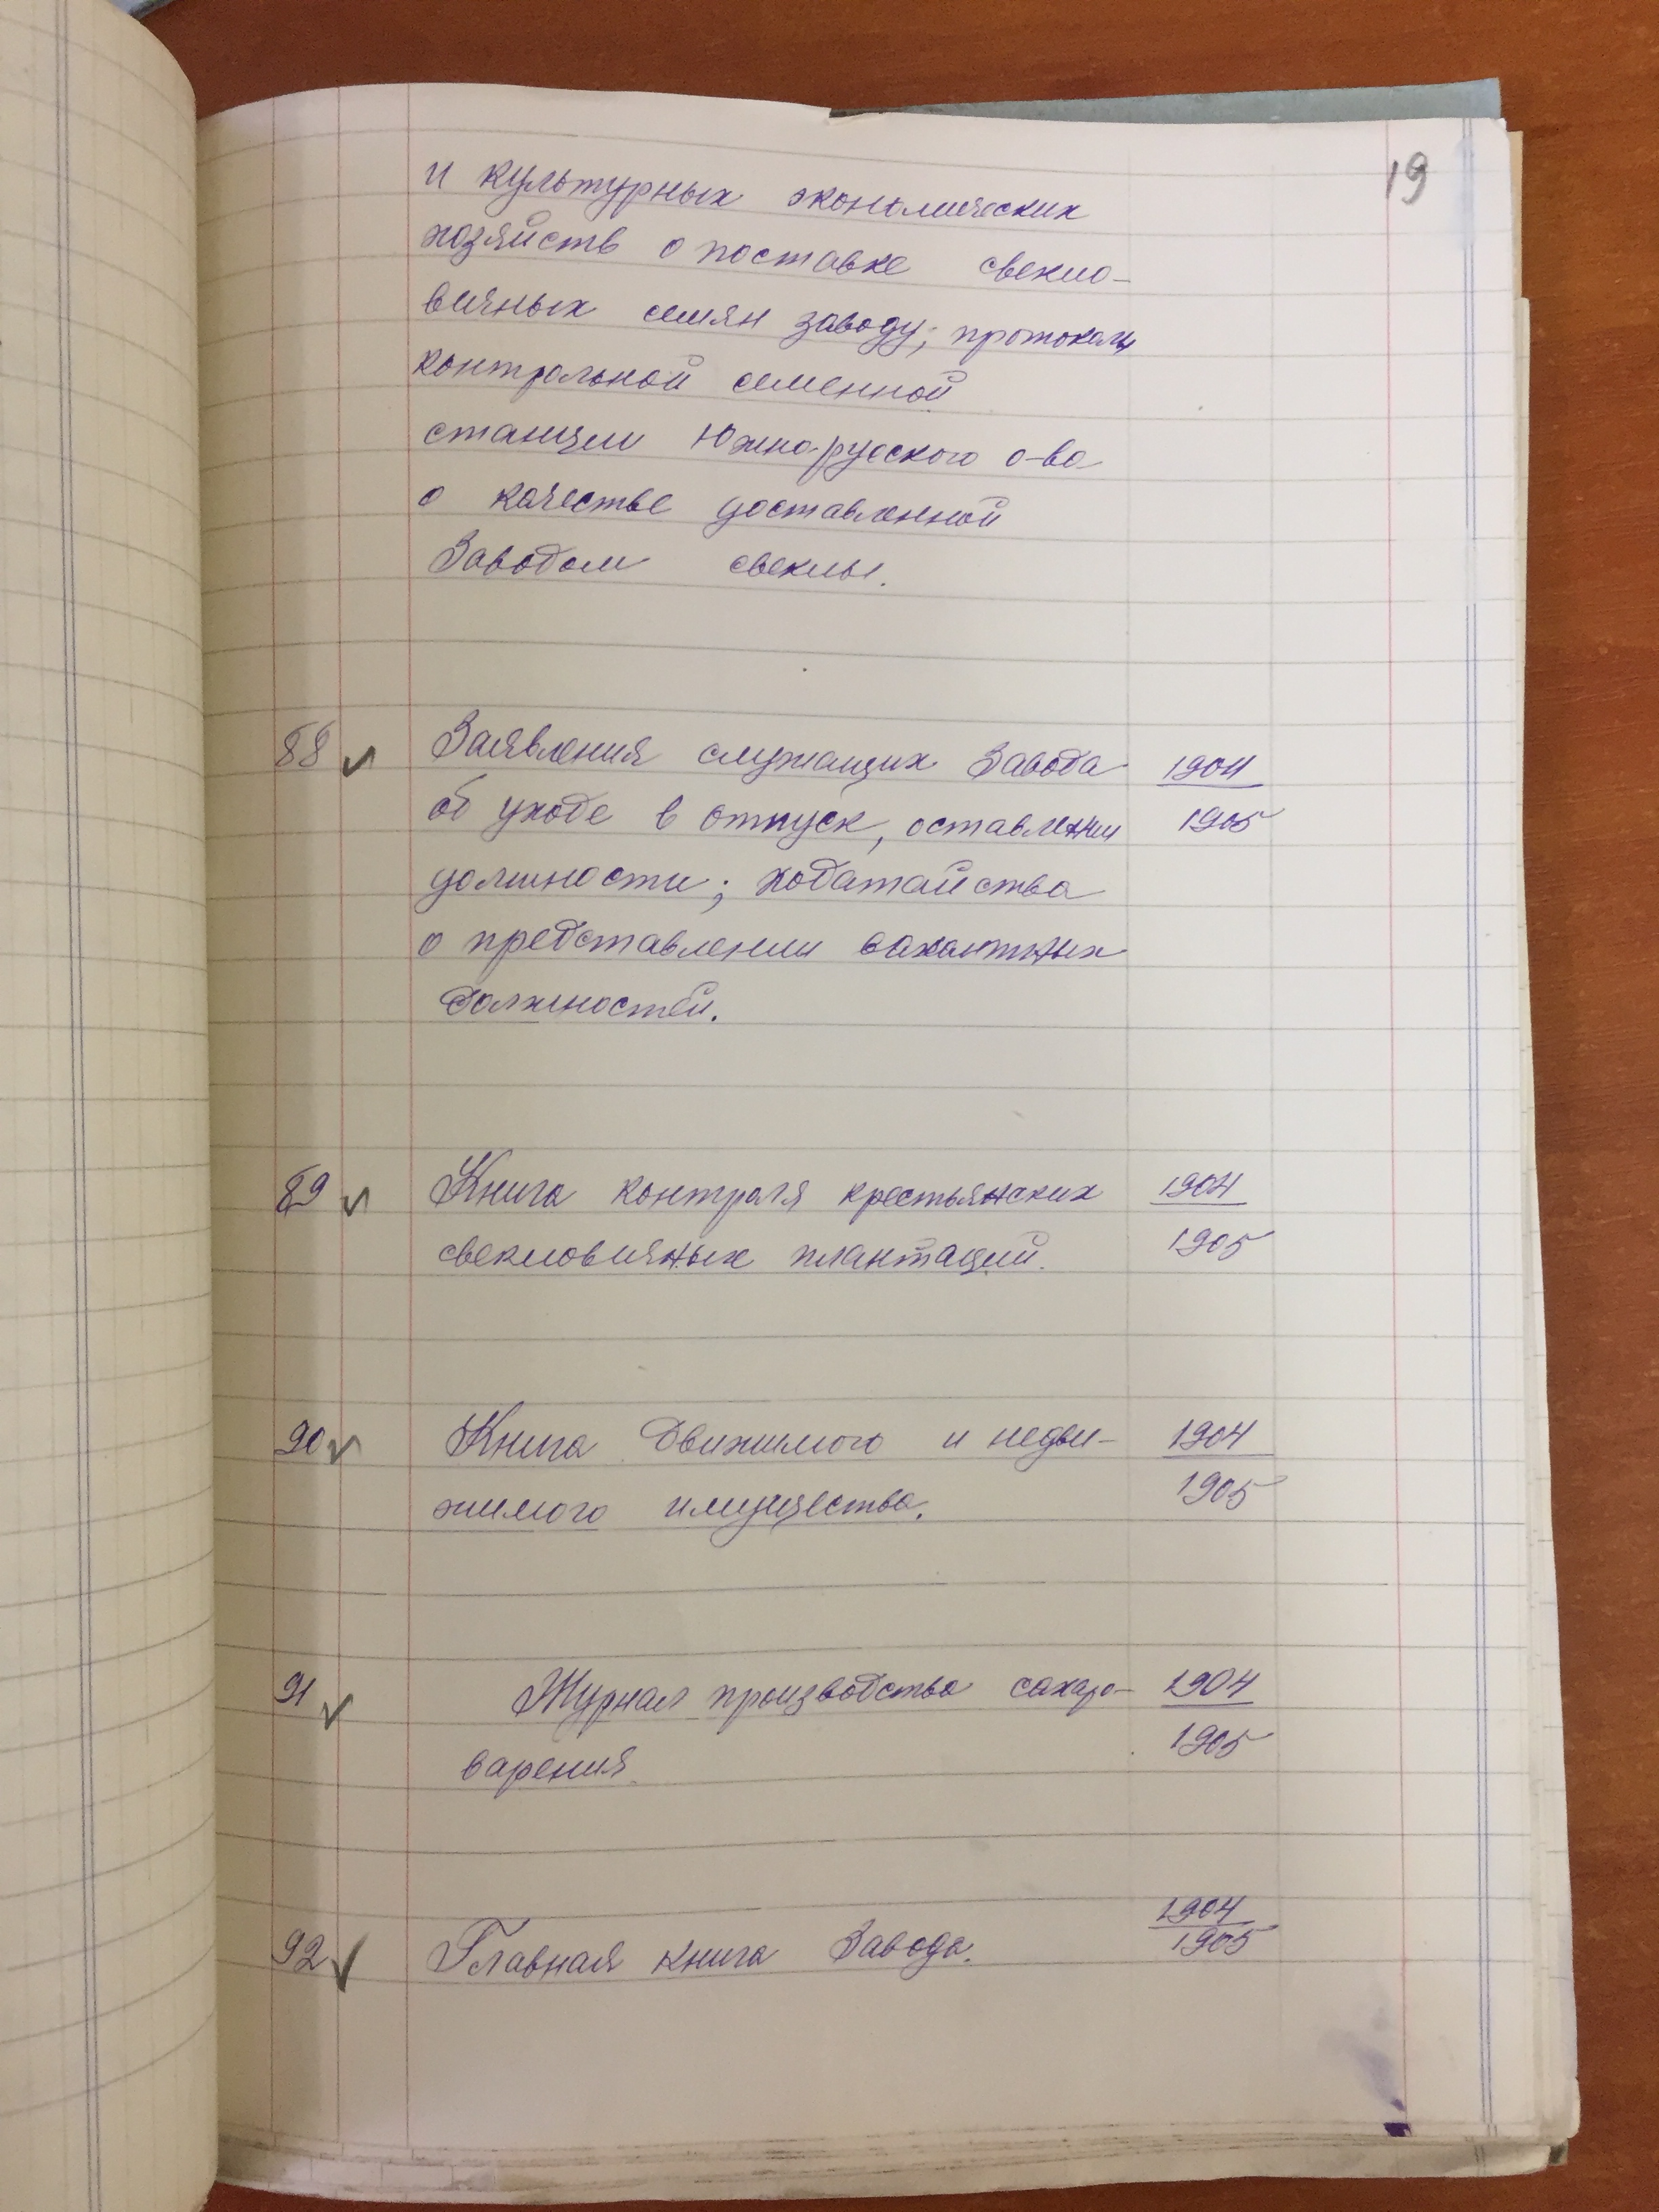 19
и культурных экономических
хозяйств о поставке свекло-
вичных семян заводу; протоколы
контрольной семенной
станции Южно-русского о-ва
о качестве доставленной
Заводом свеклы.
88 Заявления служащих Завода 1904
об уходе в отпуск, оставлении 1905
должности; ходатайства
о представлении вакантных
должностей.
89 Книга контроля крестьянских 1904
свекловичных плантаций. 1905
90 Книга движимого и недви- 1904
жимого имущества. 1905
91 Журнал производства сахаро- 1904
варения 1905
92 Главная книга Завода. 1904
1905